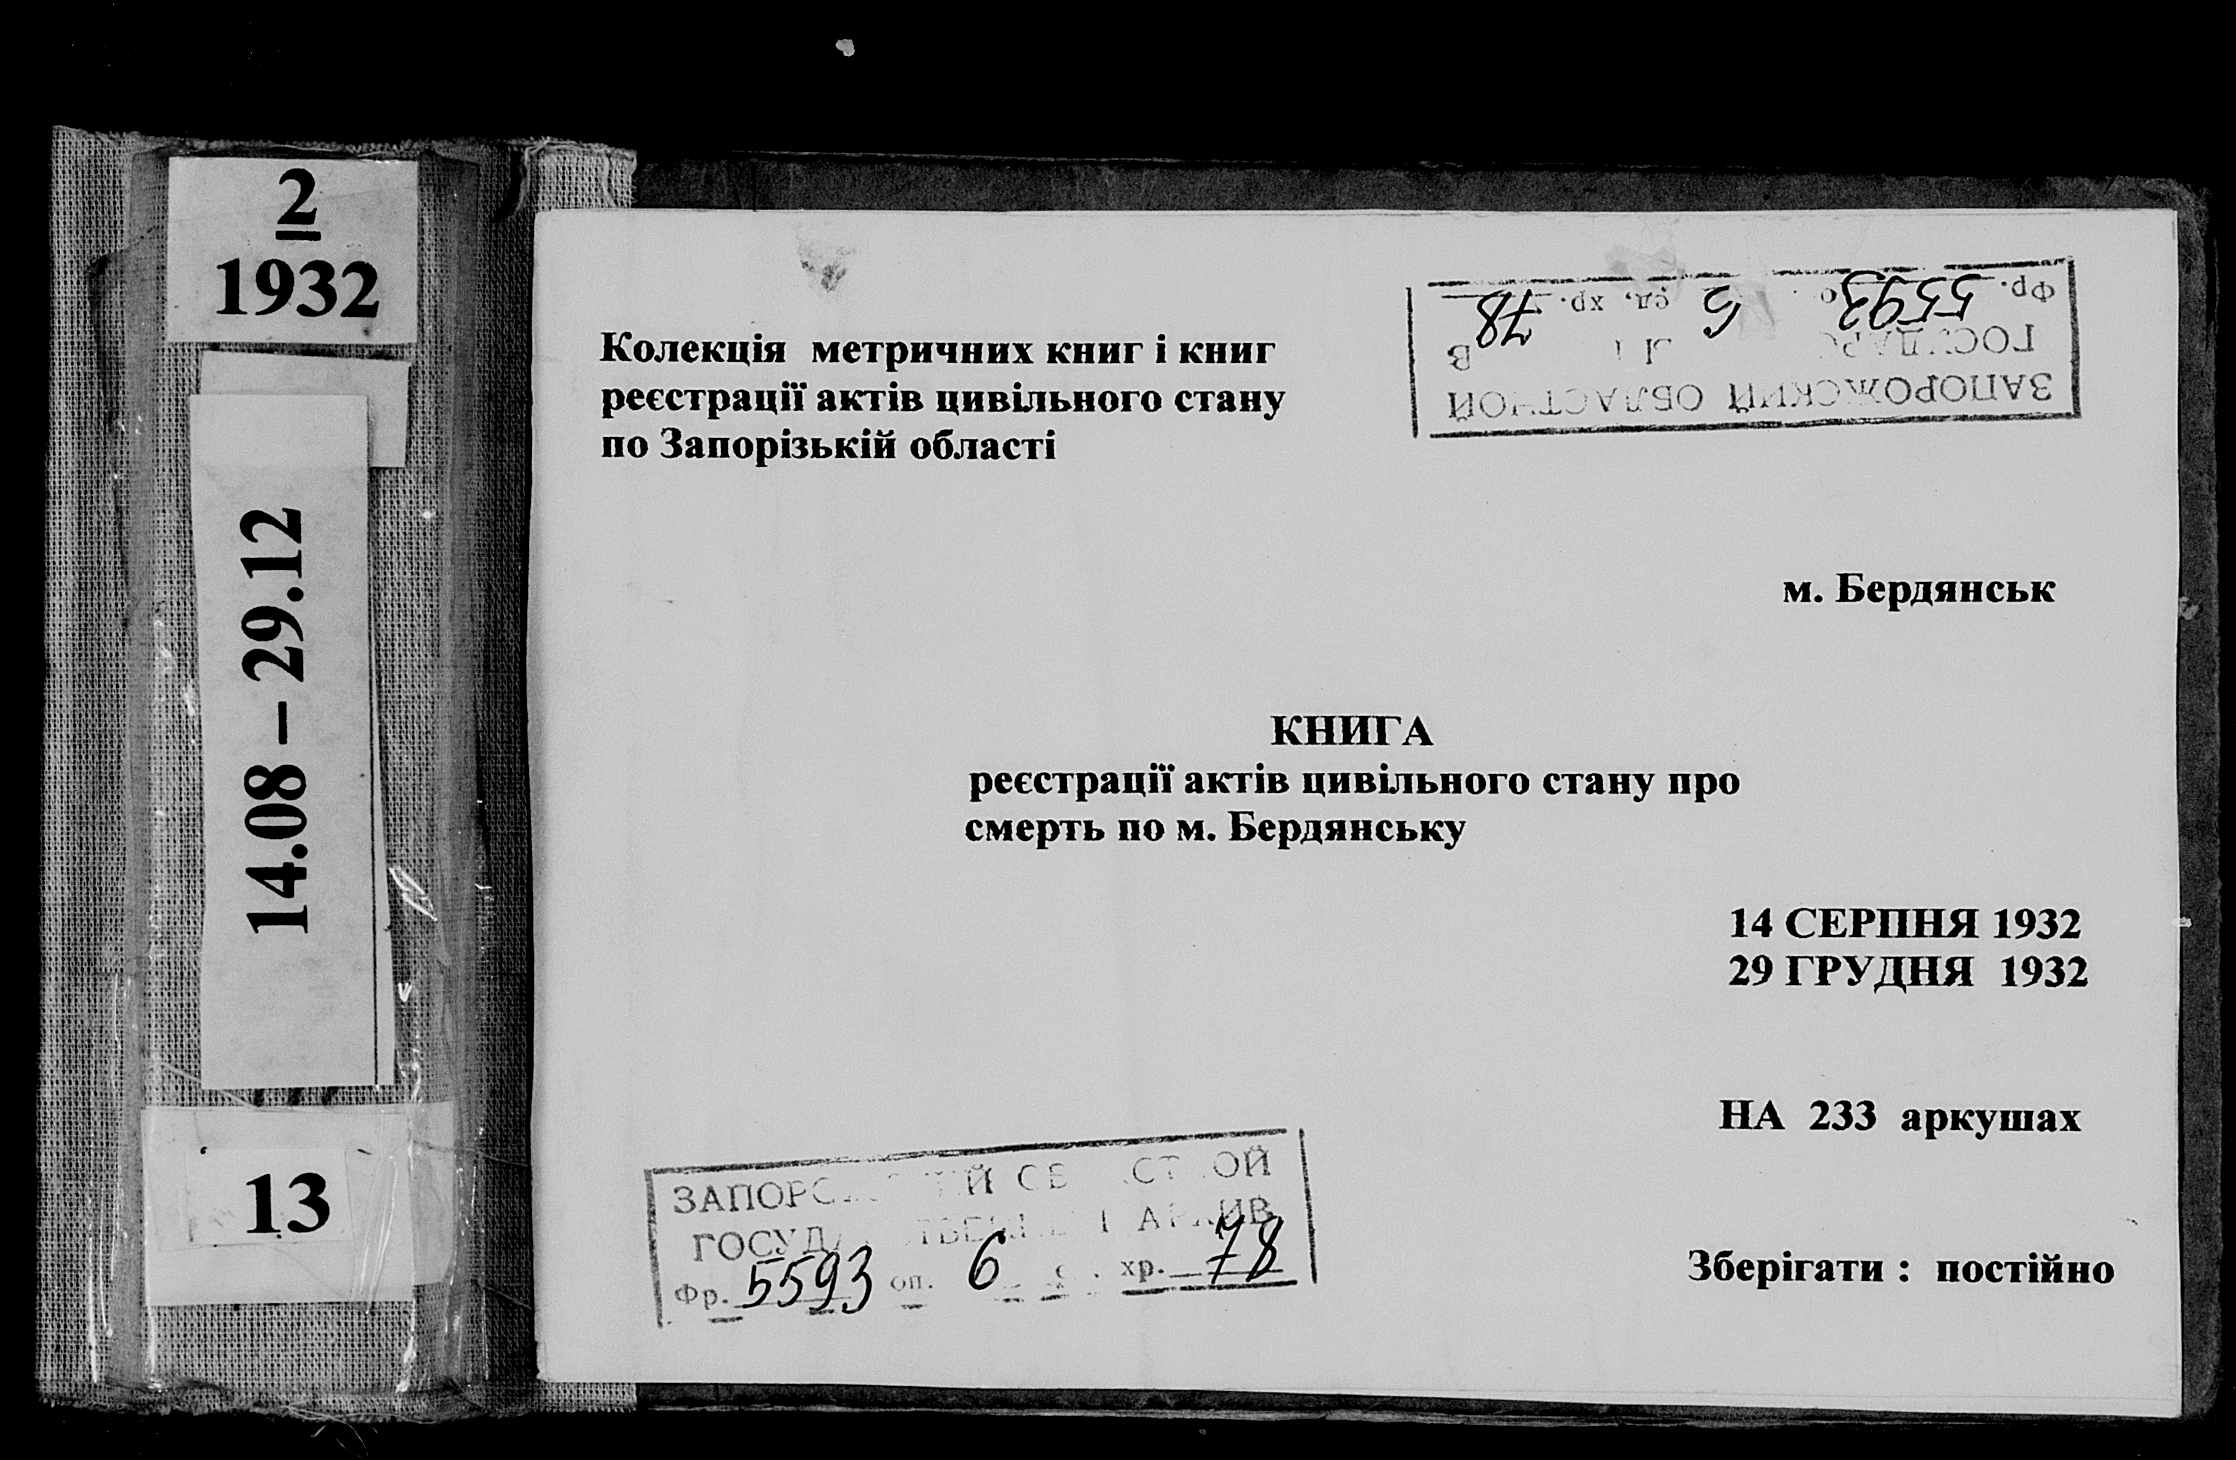 2
1932
14.08 – 29.12
13
Колекція метричних книг і книг
реєстрації актів цивільного стану
по Запорізькій області
ЗАПОРОЖСКИЙ ОБЛАСТНОЙ
Фр. 5593 6 ед. хр. 78
м. Бердянськ
КНИГА
реєстрації актів цивільного стану про
смерть по м. Бердянську
14 СЕРПНЯ 1932
29 ГРУДНЯ 1932
НА 233 аркушах
ЗАПОРОЖСКИЙ ОБЛАСТНОЙ
ГОСУДАРСТВЕННЫЙ АРХИВ
Фр. 5593 оп. 6 хр. 78
Зберігати : постійно